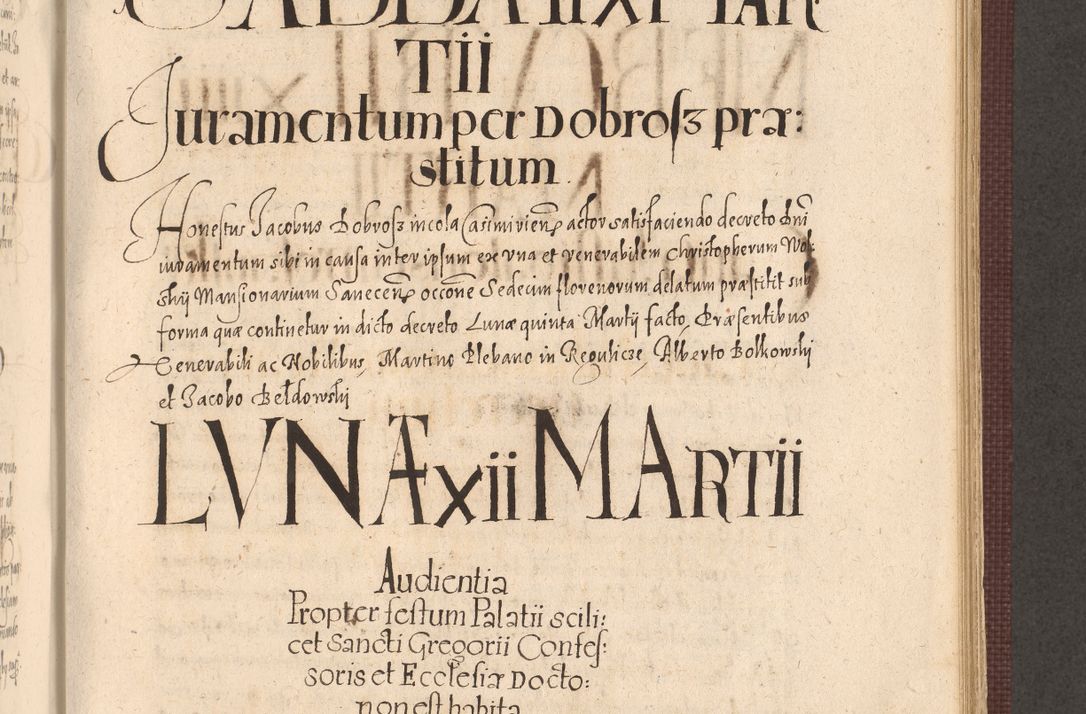 SABBATI XI MAR
TII
Juramentum per Dobrosz præ:
stitum
Honestus Jacobus Dobrosz incola Casimirien̄ actor satisfaciendo decreto Dn̄i
iuramentum sibi in causa inter ipsum ex vna et venerabilem Christopherum Wol:
skij Mansionarium Sanecen̄ occõne Sedecim florenorum delatum præstitit sub
forma quæ continetur in dicto decreto Lunæ quinta Martij facto, Præsentibus
Venerabili ac Nobilibus, Martino Plebano in Regulicze, Alberto Bolkowski
et Jacobo Bełdowski
LVNÆ xii MARTII
Audientia
Propter festum Palatii scili:
cet Sancti Gregorii Confes:
soris et Ecclesiæ Docto:
non est habita